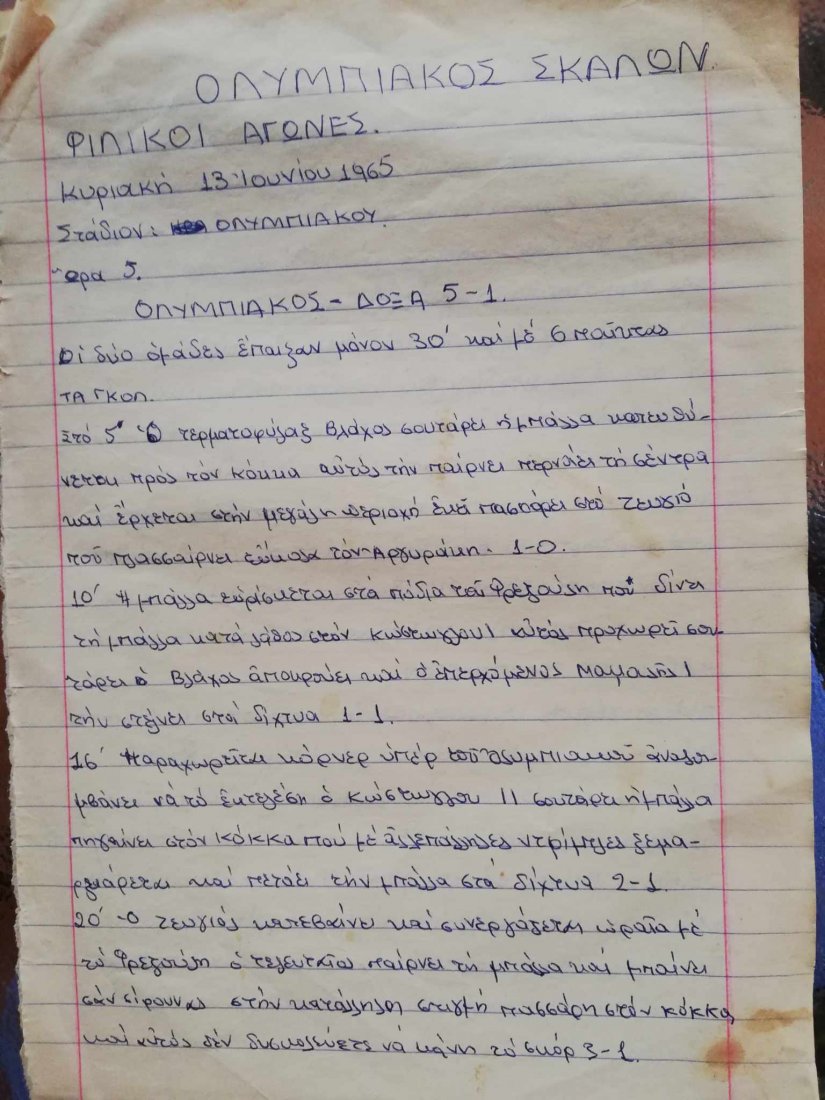 ΟΛΥΜΠΙΑΚΟΣ ΣΚΑΛΩΝ.
ΦΙΛΙΚΟΙ ΑΓΩΝΕΣ.
Κυριακή 13 Ιουνίου 1965
Στάδιον: ΟΛΥΜΠΙΑΚΟΥ.
Ὥρα 5.
ΟΛΥΜΠΙΑΚΟΣ - ΔΟΞΑ 5-1.
Οἱ δύο ὁμάδες ἔπαιξαν μόνον 30΄ καί μέ 6 παῖκτας
ΤΑ ΓΚΟΛ.
Στό 5' Ὁ τερματοφύλαξ Βλάχος σουτάρει ἡ μπάλλα κατευθύ-
νεται πρός τόν Κόκκα αὐτός τήν παίρνει περνάει τή σέντρα
καί ἔρχεται στήν μεγάλη περιοχή ἐκεῖ πασσάρει στό Τευγιό
πού πλασσαίρνει εὔκολα τόν Ἀργυράκη. 1-0.
10΄ Η μπάλλα εὑρίσκεται στά πόδια τοῦ Φρεζούλη πού δίνει
τή μπάλλα κατά λάθος στόν Κώστογλου Ι αὐτός προχωρεῖ σου-
τάρει ὁ Βλάχος ἀποκρούει καί ὁ ἐπερχόμενος Μαμαλῆς Ι
τήν στέλνει στά δίχτυα 1-1.
16΄ Παραχωρεῖται κόρνερ ὑπέρ τοῦ Ὀλυμπιακοῦ ἀναλα-
μβάνει νά τό ἐκτελέση ὁ Κώστογλου ΙΙ σουτάρει ἡ μπάλλα
πηγαίνει στόν Κόκκα πού μέ ἀλλεπάλληλες ντρίμπλες ξεμα-
ρκάρεται καί πετάει τήν μπάλλα στά δίχτυα 2-1.
20΄ Ο Τευγιός κατεβαίνει καί συνεργάζεται ὡραῖα μέ
τό Φρεζούλη ὁ τελευταῖος παίρνει τή μπάλλα καί μπαίνει
σάν σίφουνας στήν κατάλληλη στιγμή πασσάρη στόν Κόκκα
καί αὐτός δέν δυσκολεύετε νά κάνη τό σκόρ 3-1.